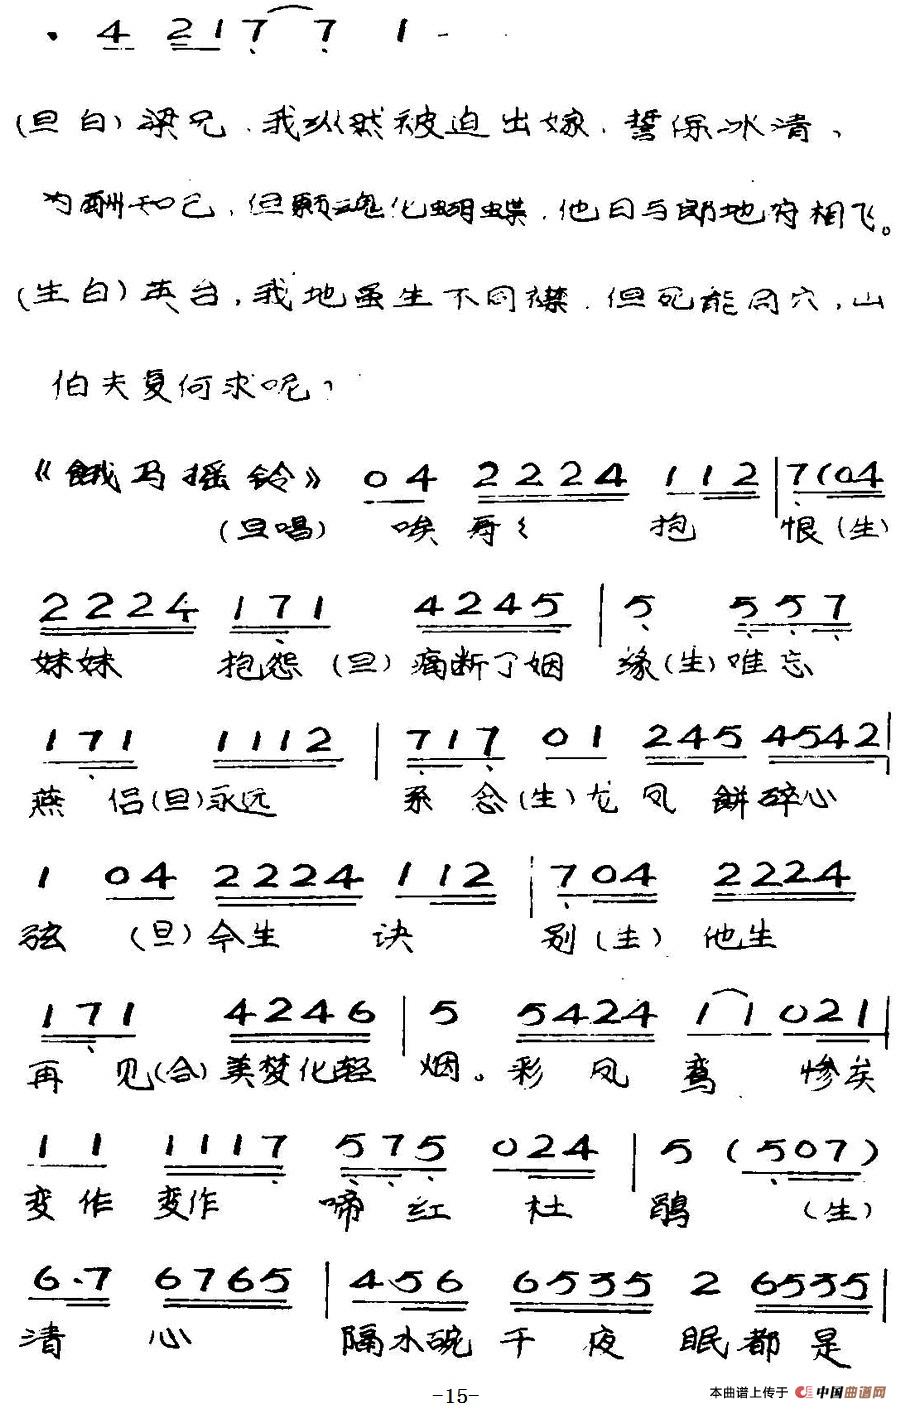 · 4 2 1 7 7 1 -
(旦白)梁兄．我纵然被迫出嫁．誓保冰清、
为酬知己，但愿魂化蝴蝶，他日与郎地府相飞。
(生白)英台，我地虽生不同襟．但死能同穴，山
伯夫复何求呢？
《饿马摇铃》 0 4 2 2 2 4 1 1 2 | 7 (0 4
(旦唱) 唉哥〻 抱 恨(生)
2 2 2 4 1 7 1 4 2 4 5 | 5 5 5 7
妹妹 抱怨(旦)痛断了姻 缘(生)唯忘
1 7 1 1 1 1 2 | 7 1 7 0 1 2 4 5 4 5 4 2 |
燕 侣(旦)永远 系 念(生)龙 凤 餅碎心
1 0 4 2 2 2 4 1 1 2 | 7 0 4 2 2 2 4
弦 (旦)今生 诀 别(生) 他生
1 7 1 4 2 4 6 | 5 5 4 2 4 1 1 0 2 1 |
再 见(合)美梦化轻 烟。彩 凤 鸾 惨矣
1 1 1 1 1 7 5 7 5 0 2 4 | 5 (5 0 7)
变作 变作 啼 红 杜 鹃 (生)
6·7 6 7 6 5 | 4·5 6 6 5 3 5 2 6 5 3 5 |
清 心 隔水碗 千 夜 眠都是
-15-
本曲谱上传于 中国曲谱网